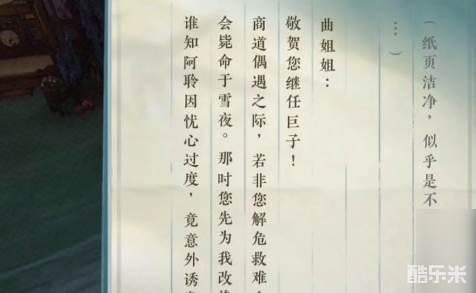 （纸页洁净，似乎是不
…）
曲姐姐：
敬贺您继任巨子！
商道偶遇之际，若非您解危救难
会毙命于雪夜。那时您先为我改
谁知阿聆因忧心过度，竟意外诱
酷乐米